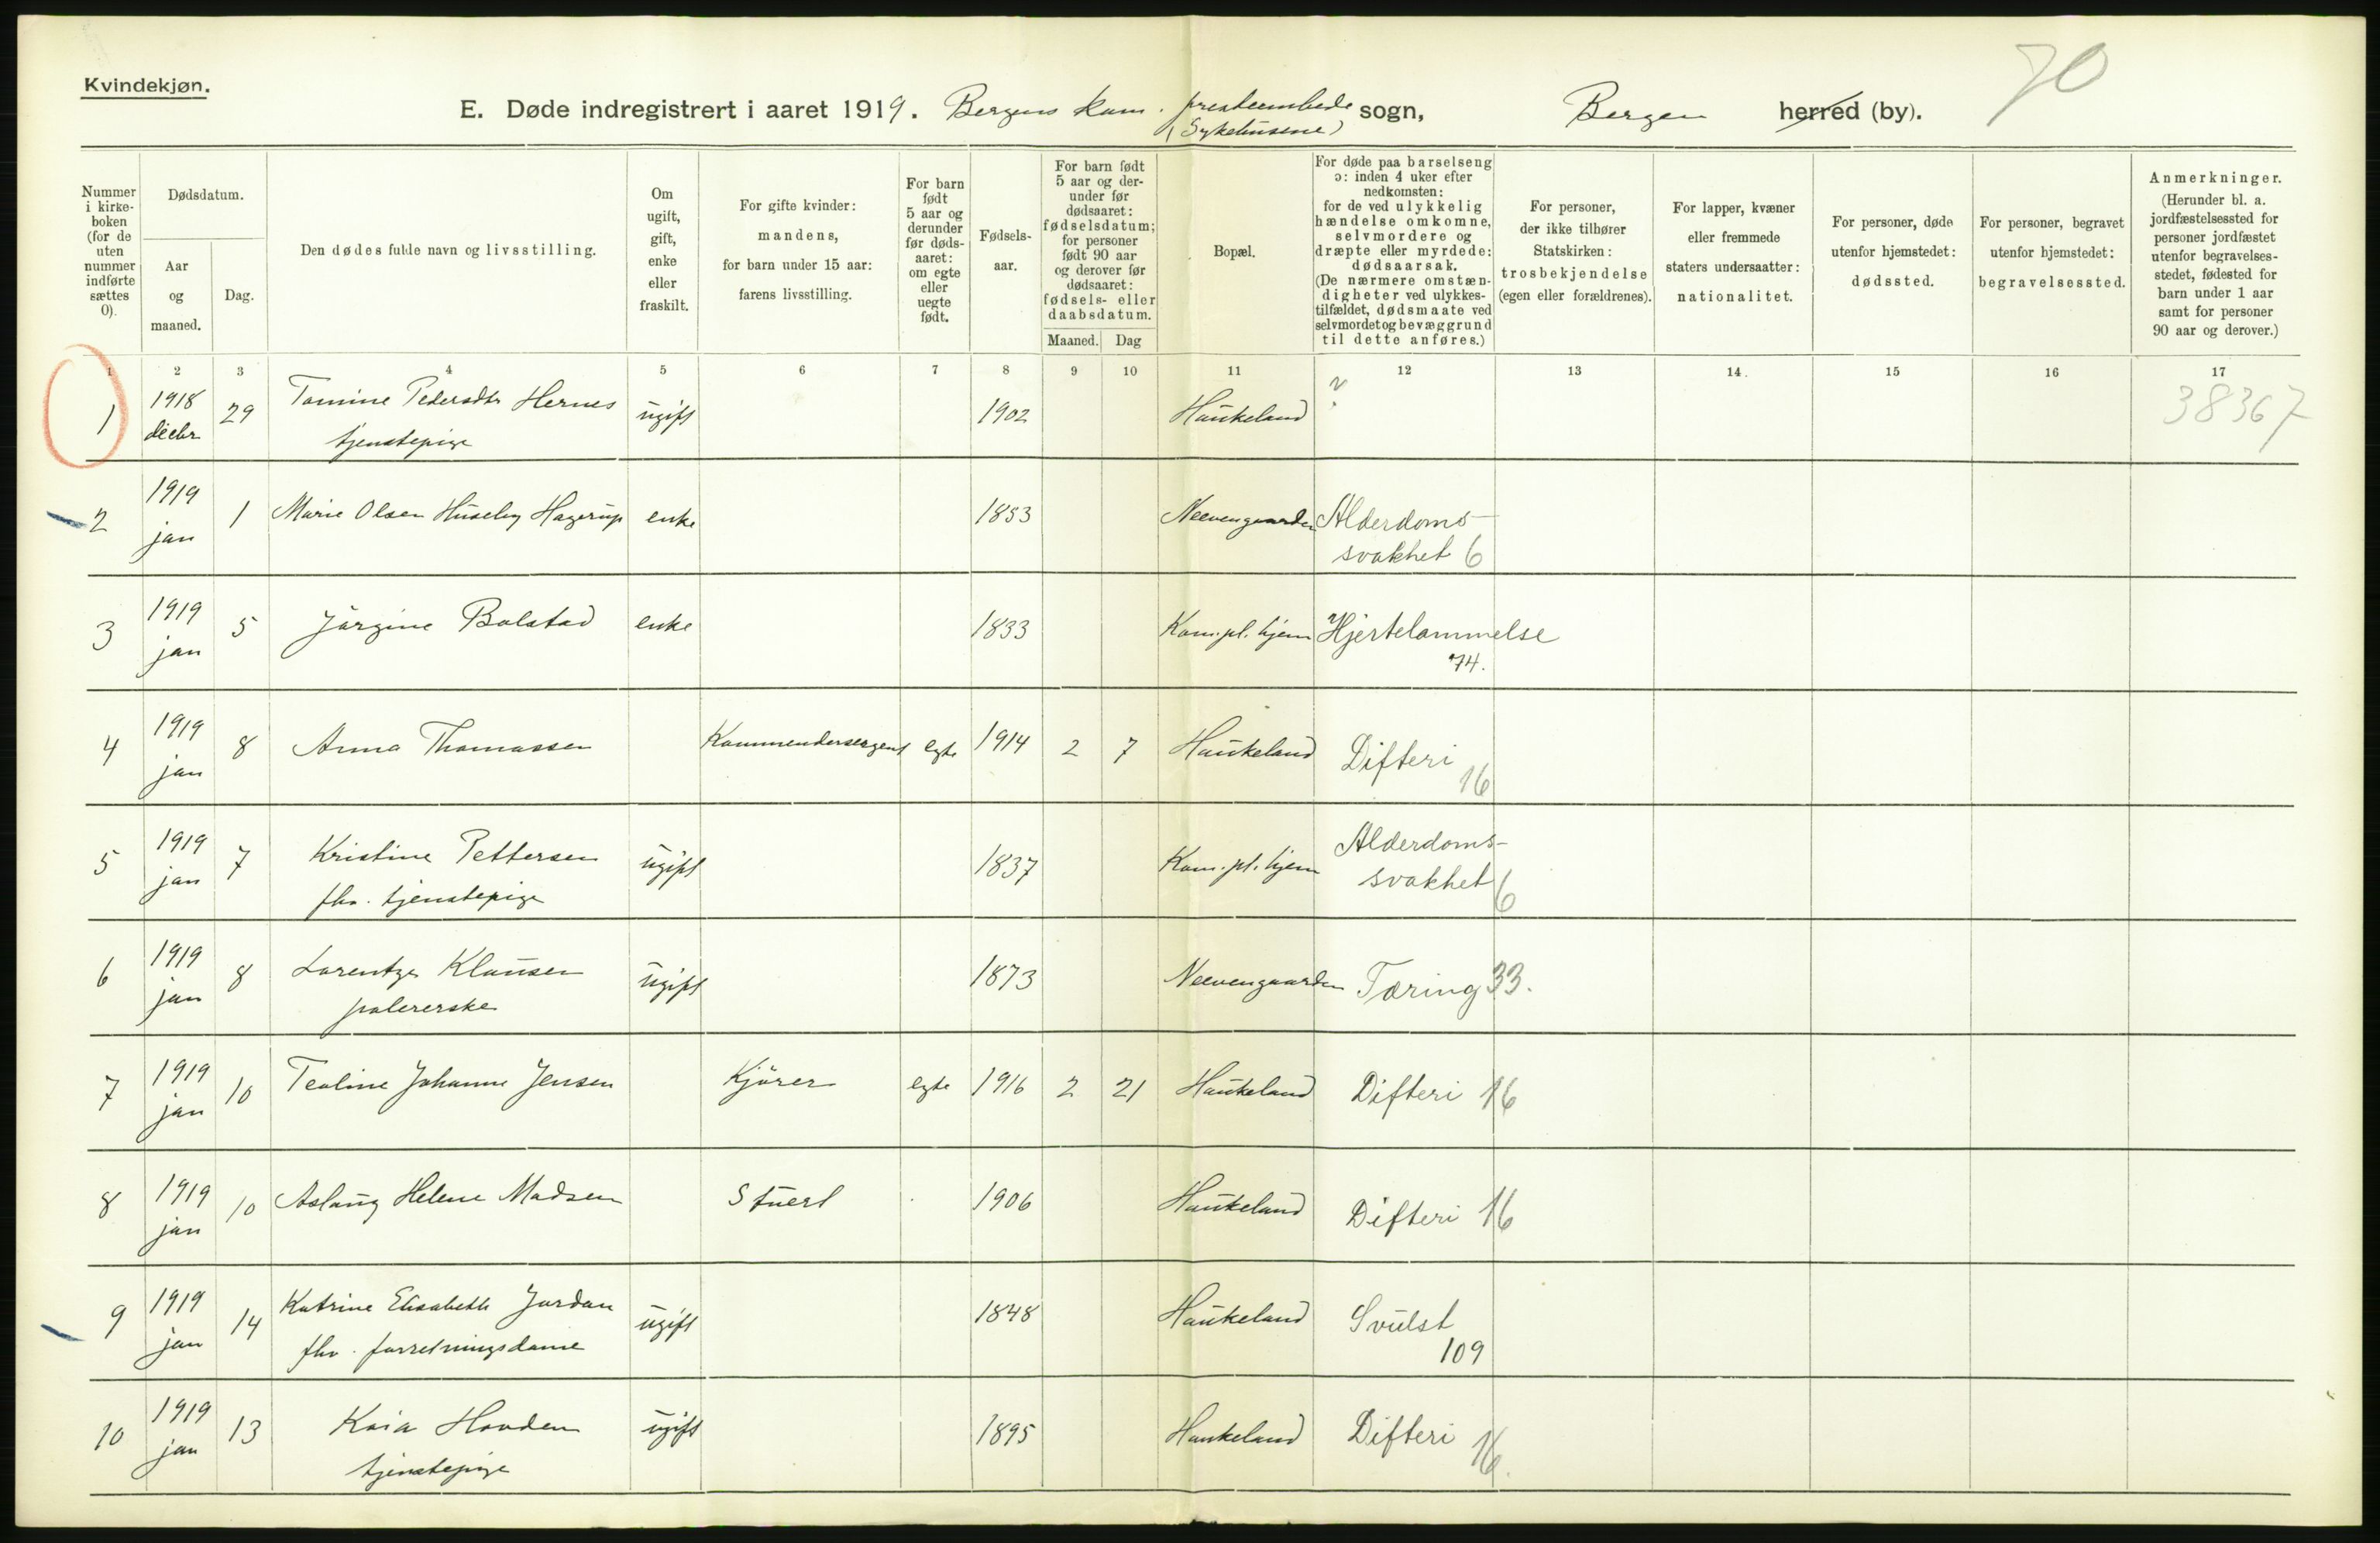 Kvindekjøn.
70
E. Døde indregistrert i aaret 1919. Bergens kom. presteembede sogn, Bergen herred (by).
(Sykehusene)
Nummer i kirke-boken (for de uten nummer indførte sættes 0).
Dødsdatum.
Aar og maaned.
Dag.
Den dødes fulde navn og livsstilling.
Om ugift, gift, enke eller fraskilt.
For gifte kvinder: mandens, for barn under 15 aar: farens livsstilling.
For barn født 5 aar og derunder før døds-aaret: om egte eller uegte født.
Fødsels-aar.
For barn født 5 aar og der-under før dødsaaret: fødselsdatum; for personer født 90 aar og derover før dødsaaret: fødsels- eller daabsdatum.
Maaned. Dag
Bopæl.
For døde paa barselseng ɔ: inden 4 uker efter nedkomsten: for de ved ulykkelig hændelse omkomne, selvmordere og dræpte eller myrdede: dødsaarsak. (De nærmere omstæn-digheter ved ulykkes-tilfældet, dødsmaate ved selvmordet og bevæggrund til dette anføres.)
For personer, der ikke tilhører Statskirken: trosbekjendelse (egen eller forældrenes).
For lapper, kvæner eller fremmede staters undersaatter: nationalitet.
For personer, døde utenfor hjemstedet: dødssted.
For personer, begravet utenfor hjemstedet: begravelsessted.
Anmerkninger. (Herunder bl. a. jordfæstelsessted for personer jordfæstet utenfor begravelses-stedet, fødested for barn under 1 aar samt for personer 90 aar og derover.)
1 2 3 4 5 6 7 8 9 10 11 12 13 14. 15 16 17
1 1918 decbr 29 Tomine Pedersdtr Hernes tjenestepige ugift 1902 Haukeland ? 38367
2 1919 jan 1 Marie Olsen Huseby Hagerup enke 1853 Neevengaarden Alderdoms-svakhet 6
3 1919 jan 5 Jørgine Bolstad enke 1833 Kom. pl. hjem Hjertelammelse 74.
4 1919 jan 8 Anna Thomassen Kommandersergent egte 1914 2 7 Haukeland Difteri 16
5 1919 jan 7 Kristine Pettersen fhv. tjenestepige ugift 1837 Kom. pl. hjem Alderdoms-svakhet 6
6 1919 jan 8 Lorentze Klausen polererske ugift 1873 Neevengaarden Tæring 33.
7 1919 jan 10 Teoline Johanne Jensen Kjører egte 1916 2 21 Haukeland Difteri 16
8 1919 jan 10 Aslaug Helene Madsen Stuert 1906 Haukeland Difteri 16
9 1919 jan 14 Katrine Elisabeth Jordan fhv. forretningsdame ugift 1848 Haukeland Svulst 109
10 1919 jan 13 Kaia Hovden tjenestepige ugift 1895 Haukeland Difteri 16.